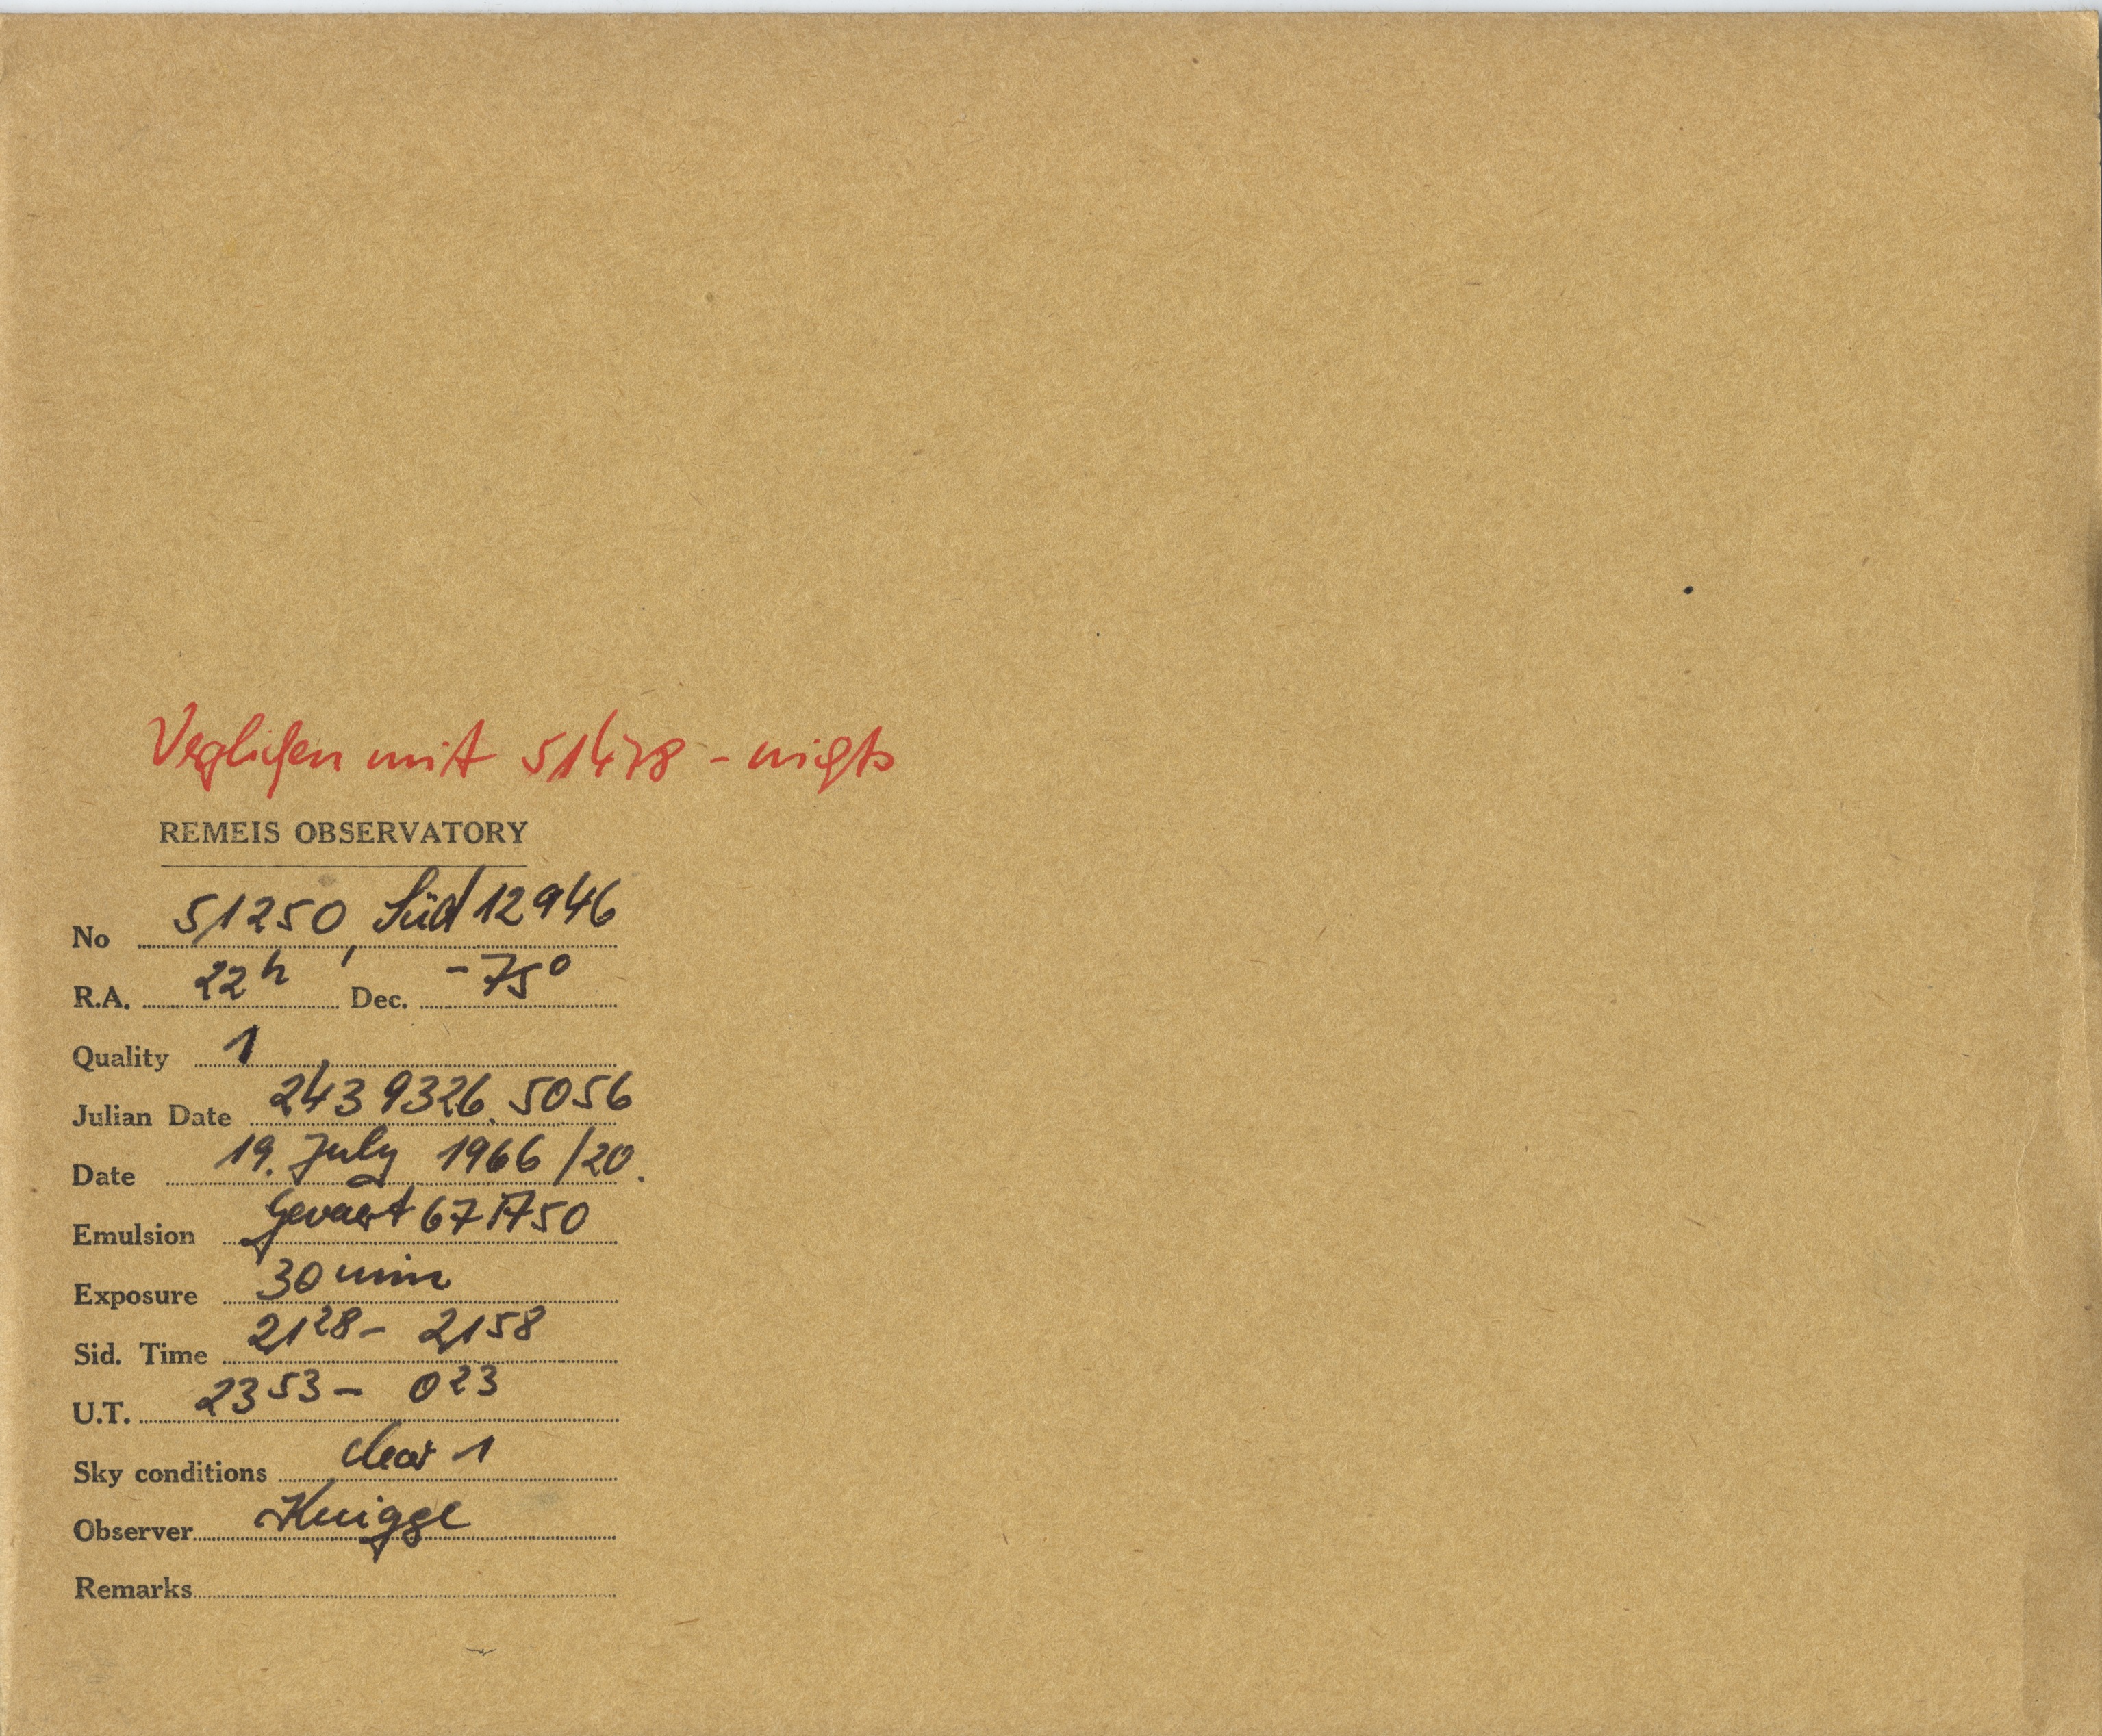 Verglichen mit 51478 - nichts
REMEIS OBSERVATORY
No 51250, Süd 12946
R.A. 22h Dec. -75°
Quality 1
Julian Date 243 9326.5056
Date 19. July 1966 /20.
Emulsion Gevaert 67A50
Exposure 30 min
Sid. Time 21 28 - 21 58
U.T. 23 53 - 0 23
Sky conditions clear 1
Observer Knigge
Remarks